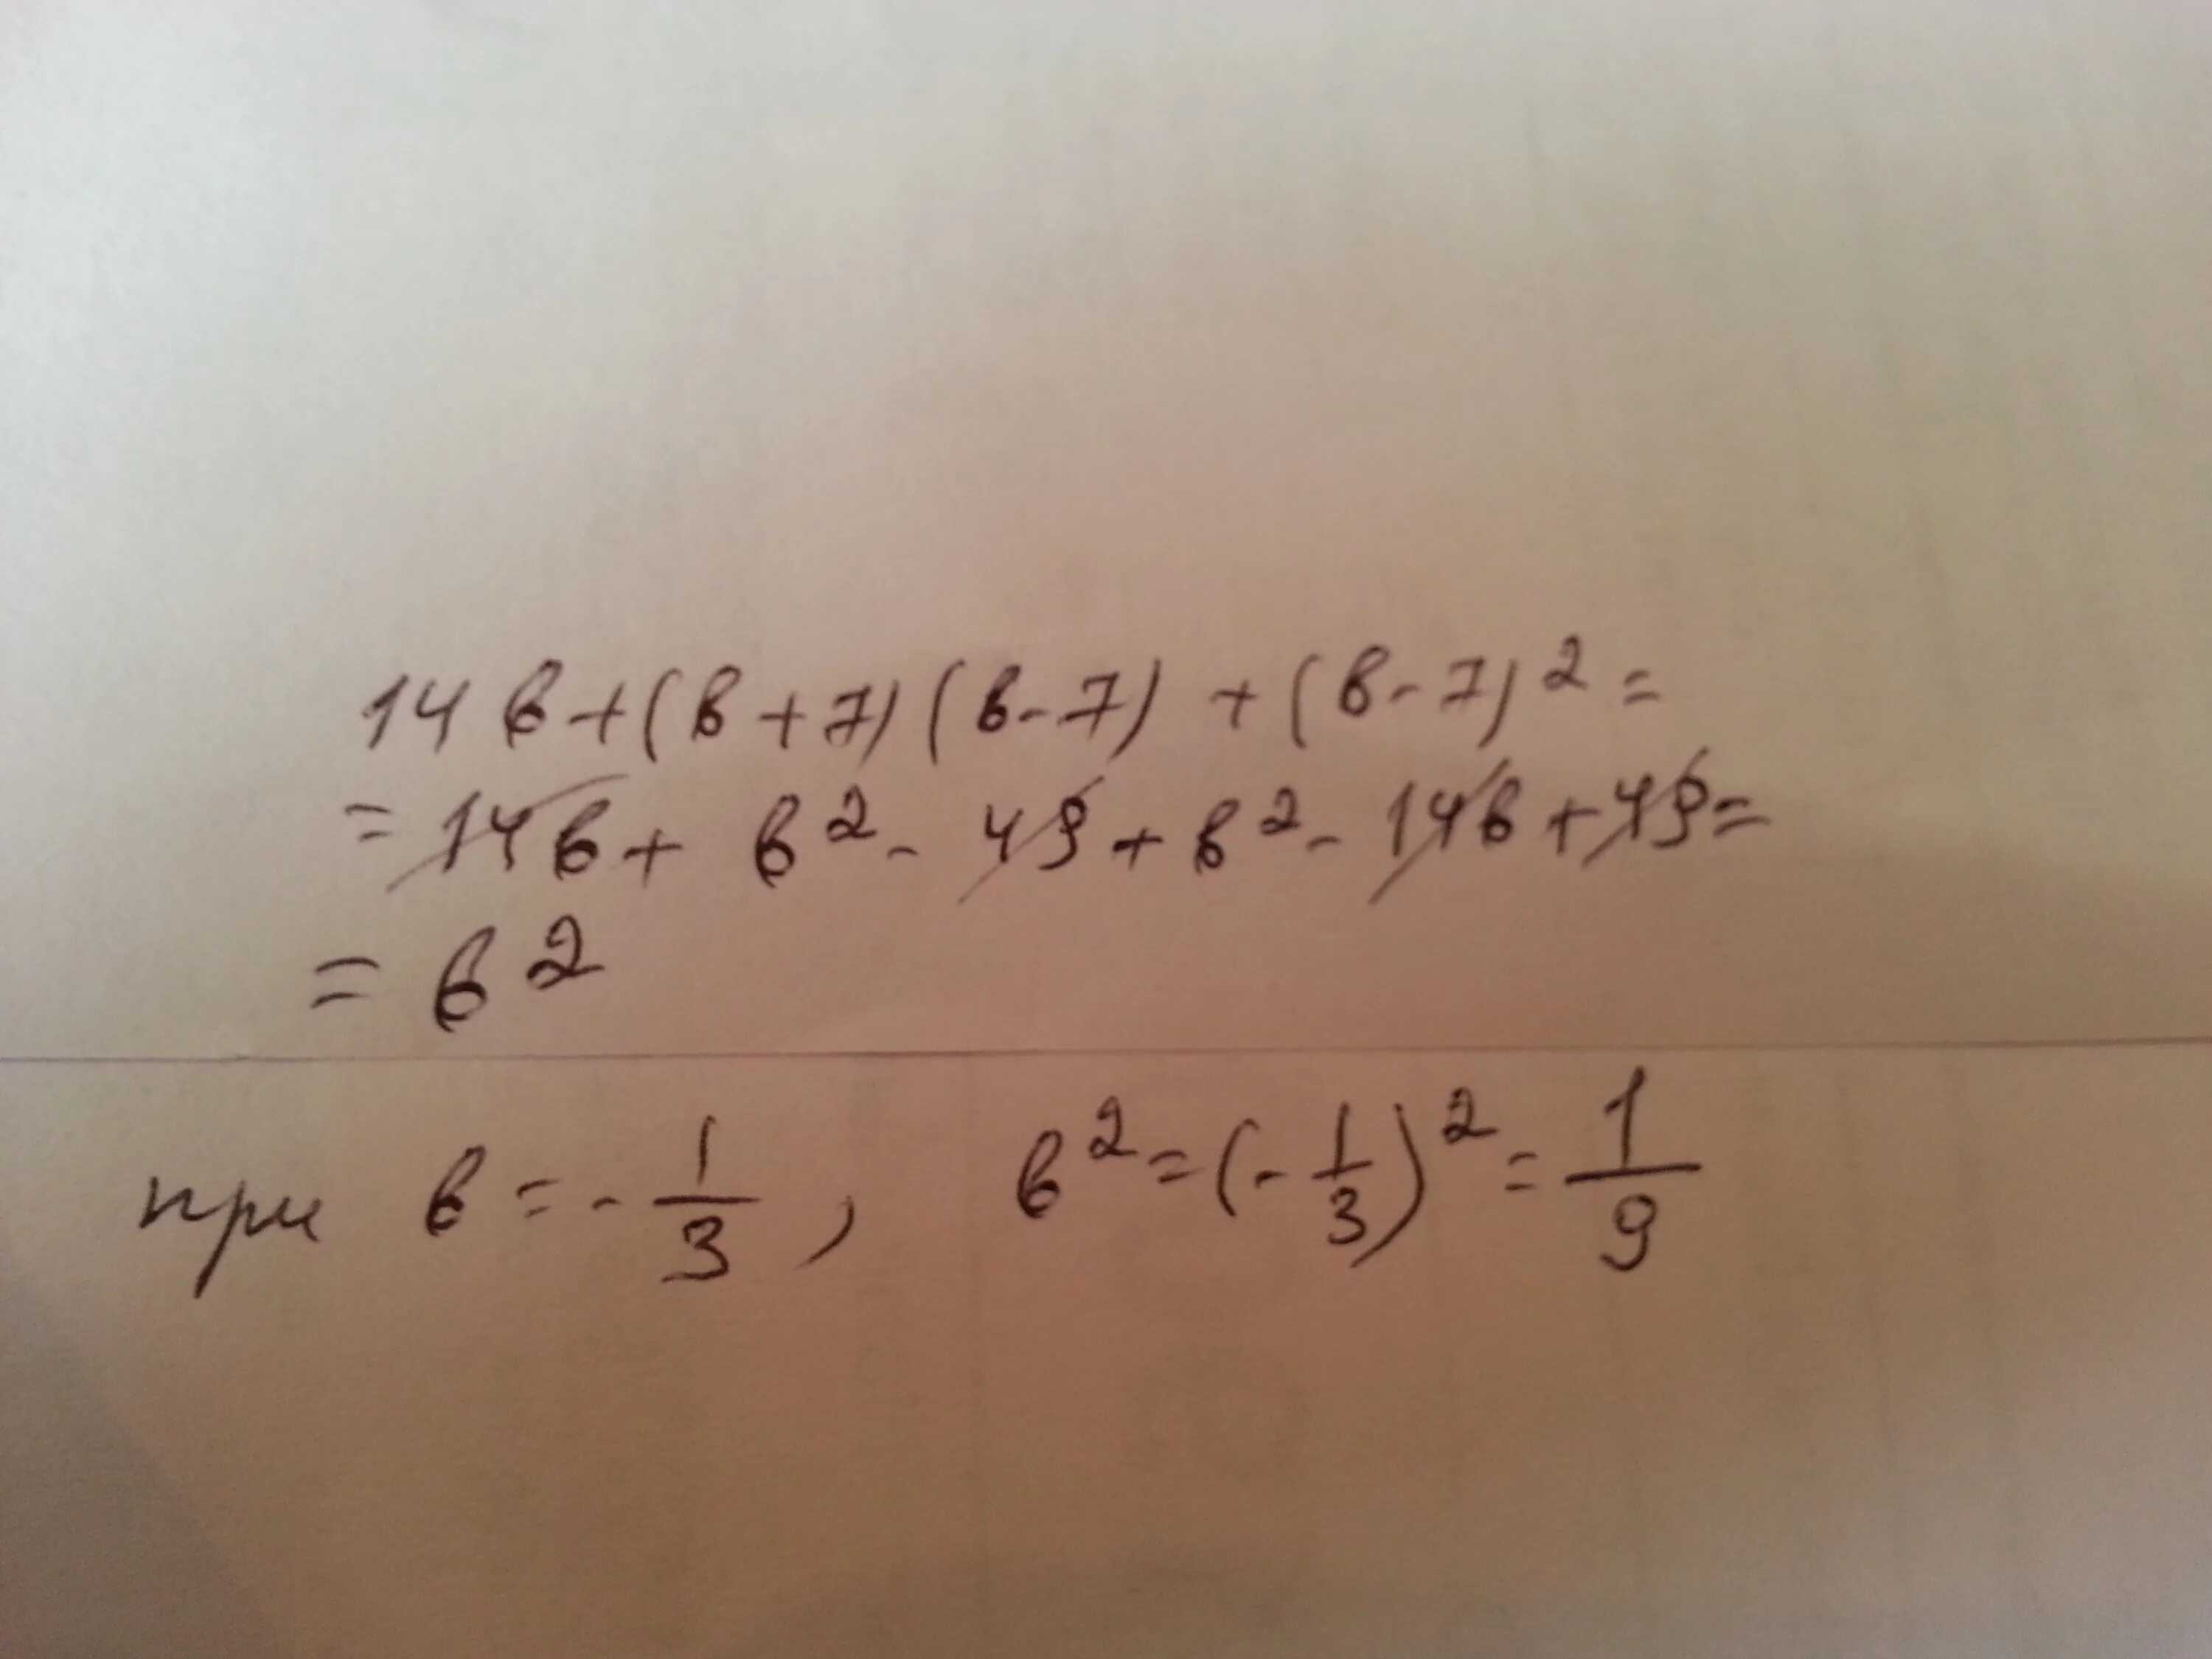 14в+(в+7)(в-7)+(в-7)²=
=14в+в²-49+в²-14в+49=
=в²
при в=-1/3, в²=(-1/3)²=1/9